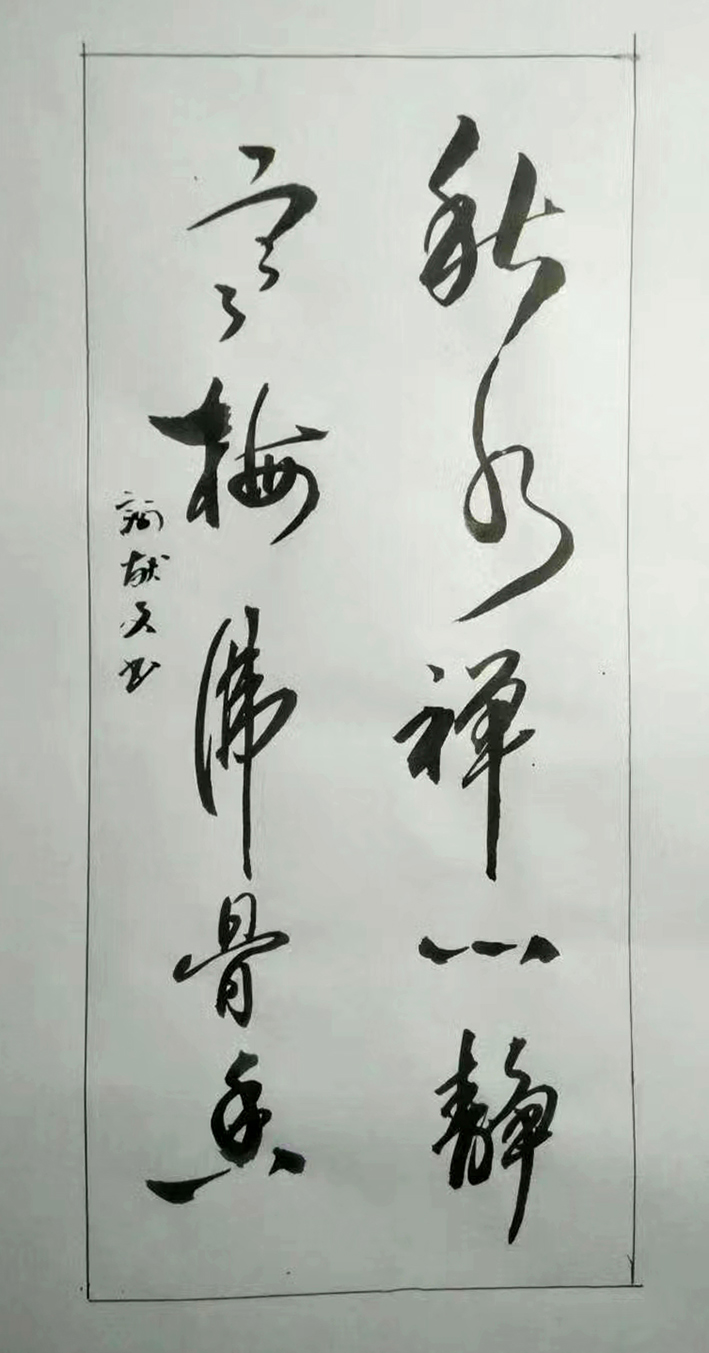 秋水禅心静
寒梅佛骨香
献文书